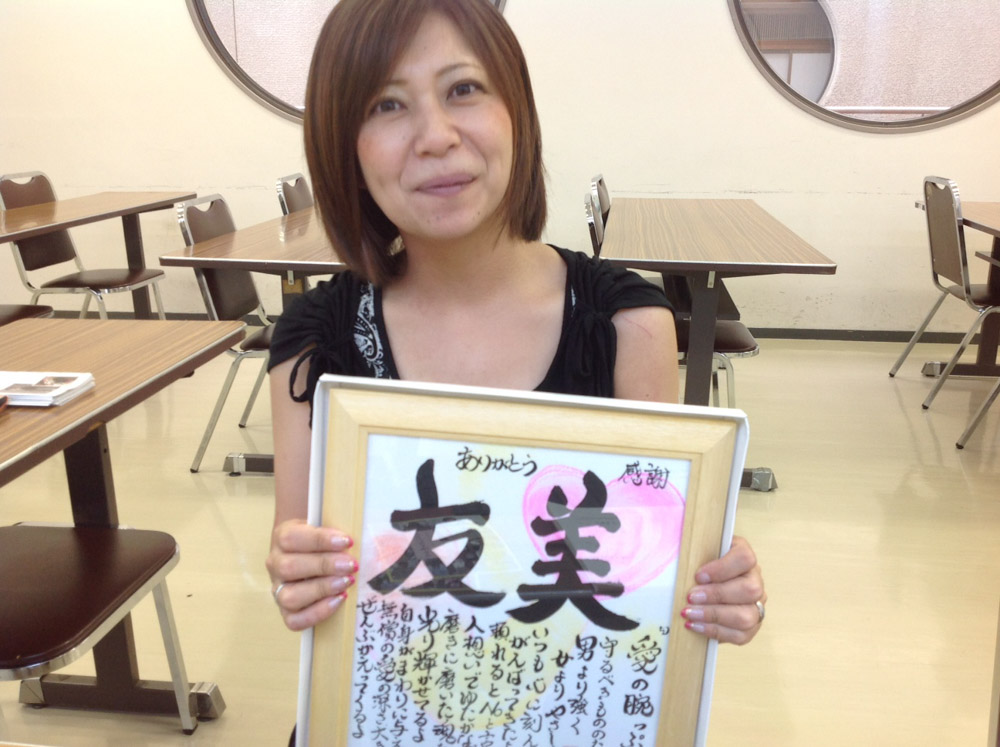 ありがとう
感謝
友美
愛の腕っぷ
守るべきものの
男より強く
かよりやさし
いつも心に刻ん
がんばってきた
頼れると
人想いでゆたかな
磨きに磨いた魂
光り輝かせてるよ
自身がまわりに与え
無償の愛の深さ大き
ぜんぶかえってくるよ